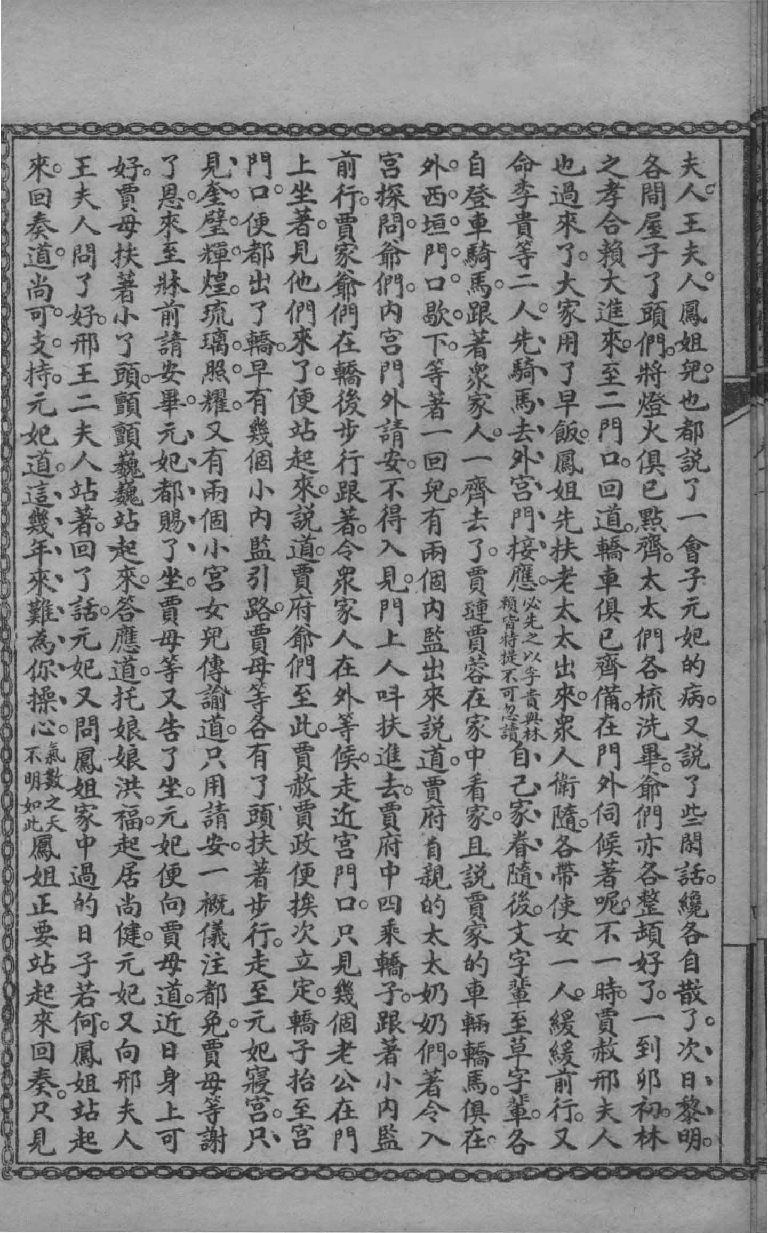 夫人王夫人鳳姐兒也都說了一會子元妃的病又說了些閒話纔各自散了次日黎明
各間屋子了頭們將燈火俱已點齊太太們各梳洗畢爺們亦各整頓好了一到卯初林
之孝合賴大進來至二門口回道轎車俱已齊備在門外伺候著呢不一時賈赦邢夫人
也過來了大家用了早飯鳳姐先扶老太太出來衆人衛隨各帶使女一人緩緩前行又
命李貴等二人先騎馬去外宮門接應必先之以李貴與林賴皆特提不可忽讀自己家眷隨後文字輩至草字輩各
自登車騎馬跟著衆家人一齊去了賈璉賈蓉在家中看家且說賈家的車輛轎馬俱在
外西垣門口歇下等著一回兒有兩個內監出來說道賈府省親的太太奶奶們著令入
宮探問爺們內宮門外請安不得入見門上人叫扶進去賈府中四乘轎子跟著小內監
前行賈家爺們在轎後步行跟著令衆家人在外等候走近宮門口只見幾個老公在門
上坐著見他們來了便站起來說道賈府爺們至此賈赦賈政便挨次立定轎子抬至宮
門口便都出了轎早有幾個小內監引路賈母等各有了頭扶著步行走至元妃寢宮只
見奎璧輝煌琉璃照耀又有兩個小宮女兒傳諭道只用請安一概儀注都免賈母等謝
了恩來至牀前請安畢元妃都賜了坐賈母等又告了坐元妃便向賈母道近日身上可
好賈母扶著小了頭顫顫巍巍站起來答應道托娘娘洪福起居尚健元妃又向邢夫人
王夫人問了好邢王二夫人站著回了話元妃又問鳳姐家中過的日子若何鳳姐站起
來回奏道尚可支持元妃道這幾年來難為你操心氣數之天不明如此鳳姐正要站起來回奏只見